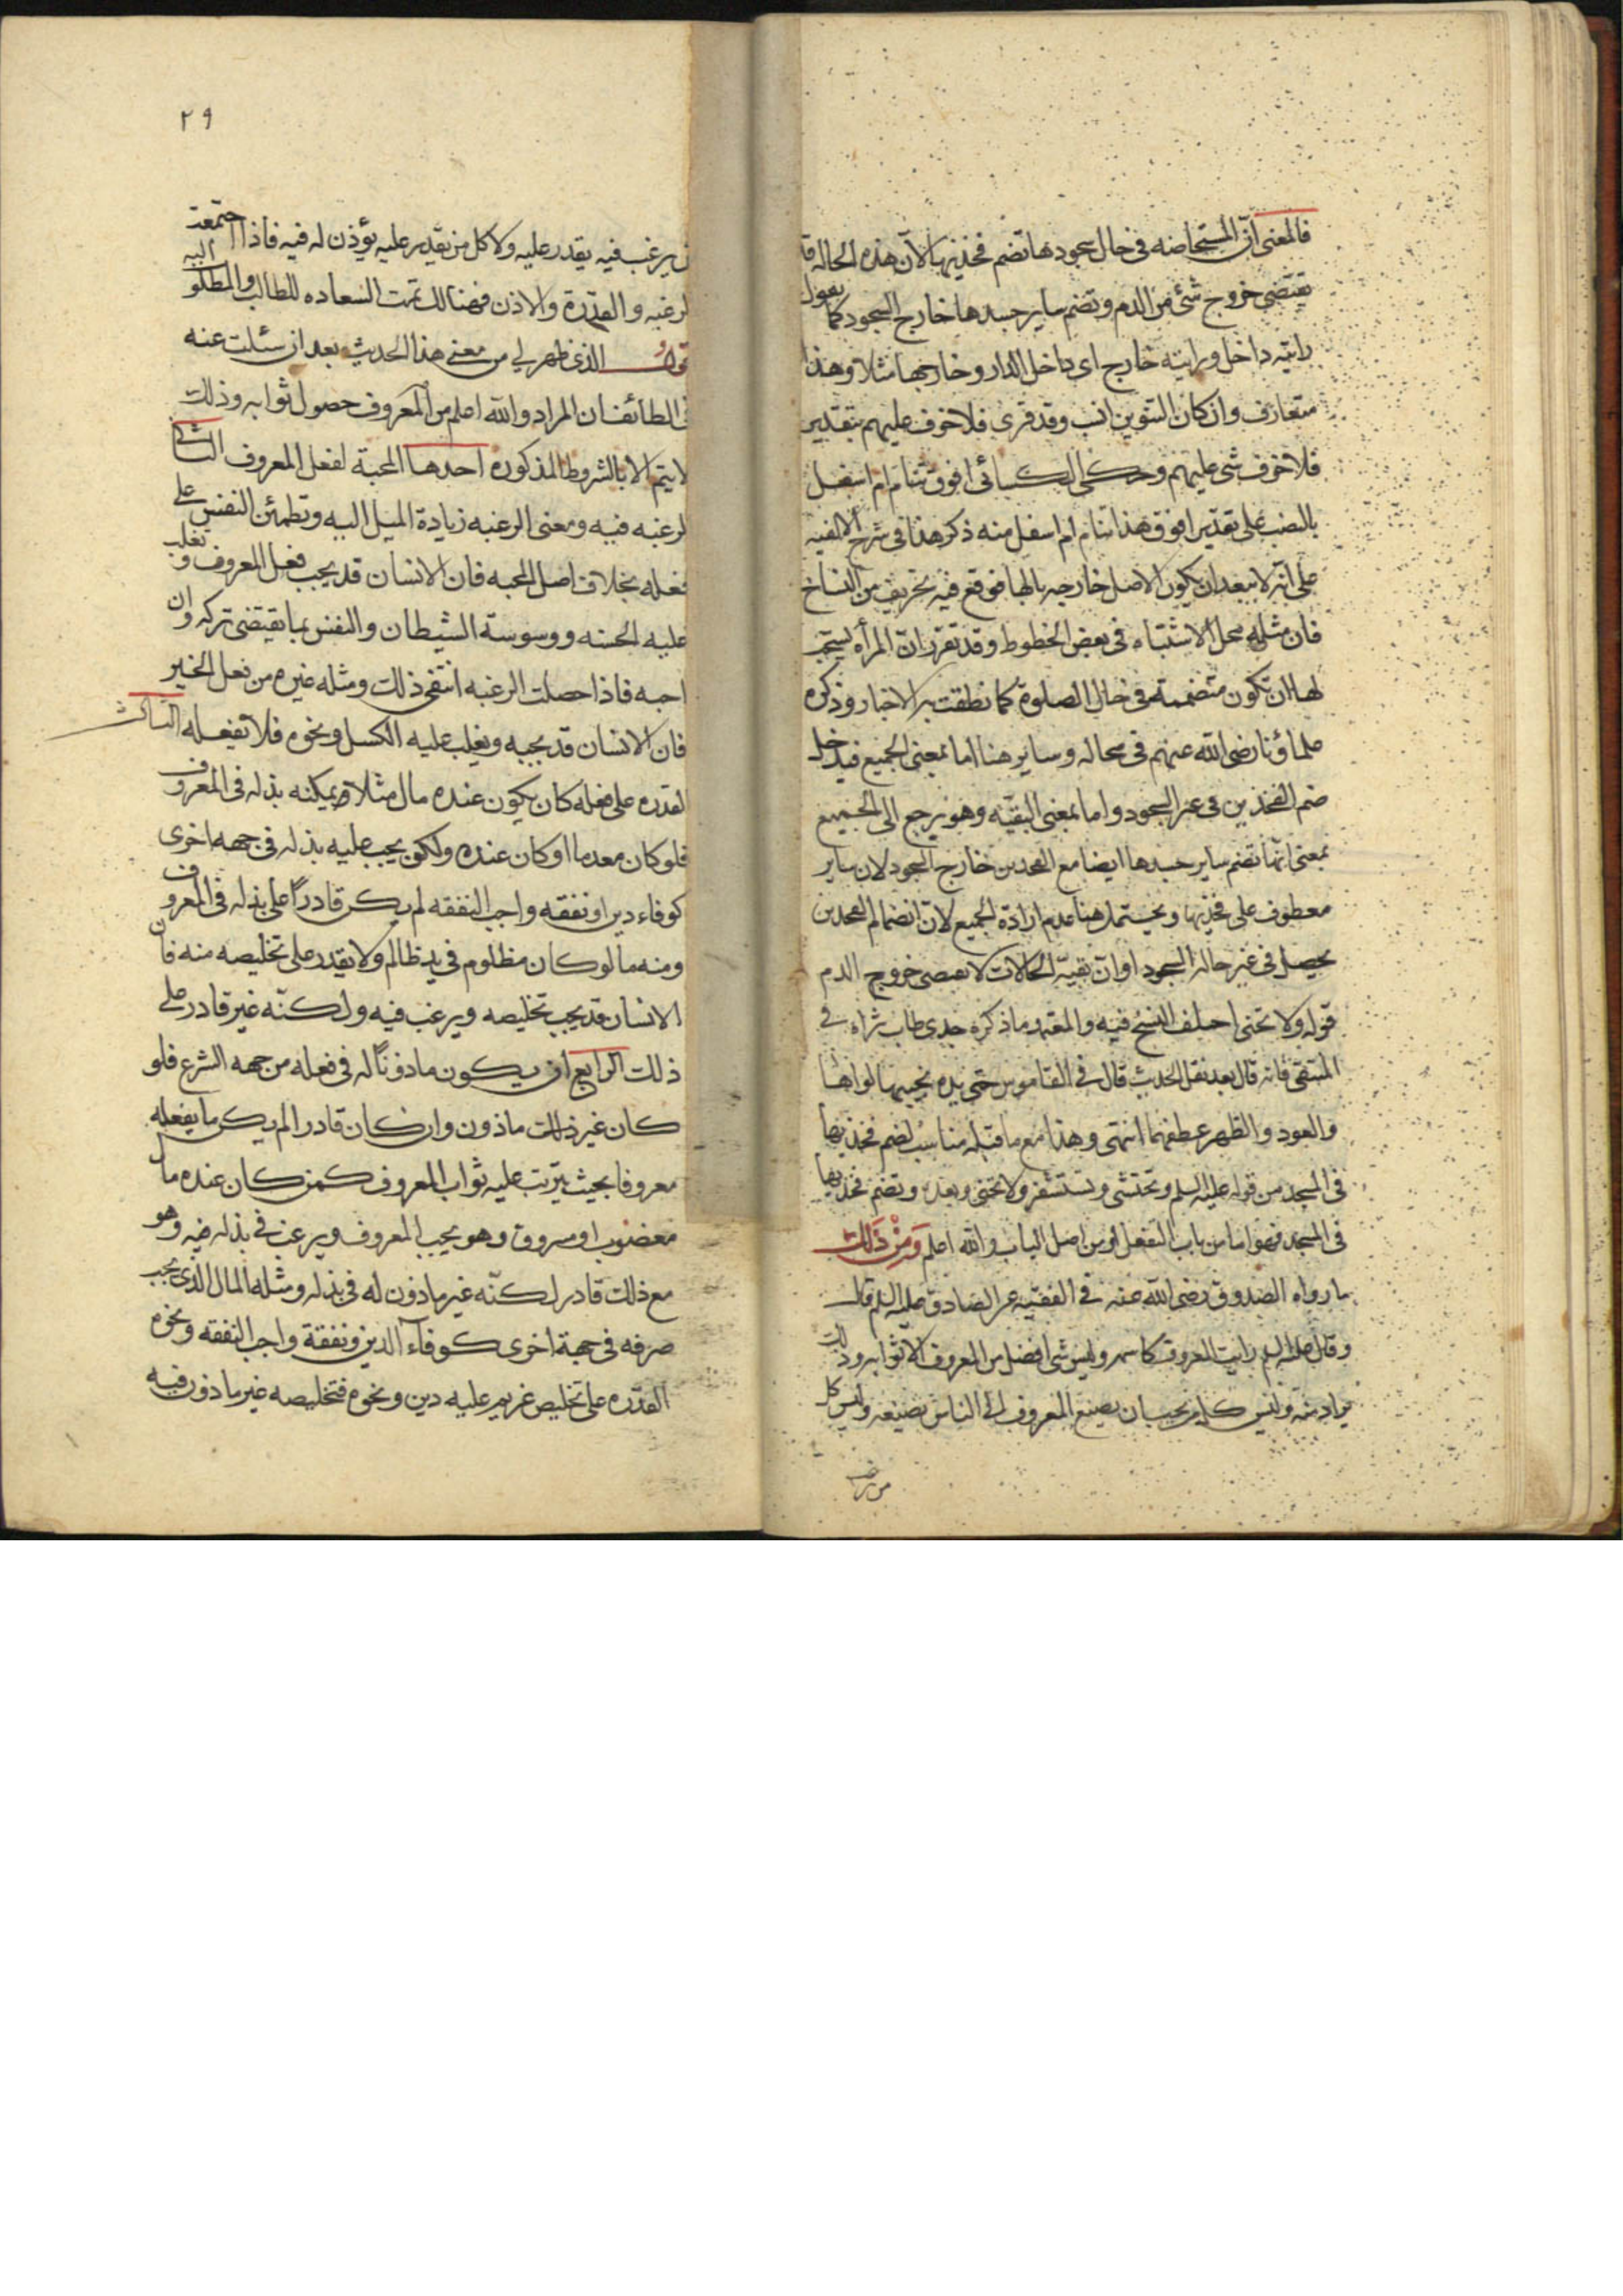 فالمعنى ان المستحاضه فى حال سجودها تضم فخذيها لان هذه الحاله قد
يقتضى خروج شئ من الدم وتضم ساير جسدها خارج السجود كما يقول
رايته داخل ورايته خارج اى داخل الدار وخارجها مثلا وهذا
متعارف وان كان التنوين انسب وقد قرى فلا خوف عليهم بتقدير
فلا خوف شى عليهم وحكى الكسائى افوق تنام ام اسفل
بالنصب على تقدير افوق هذا تنام ام اسفل منه ذكر هذا فى شرح الالفيه
على انه لا يبعد ان يكون الاصل خارجه بالها فوقع فيه تحريف من النساخ
فان مثله محل الاشتباه فى بعض الخطوط وقد تقرر ان المرأه يستحب
لها ان تكون متضممة فى حال الصلوة كما نطقت به الاخبار وذكره
علماؤنا رضى الله عنهم فى محاله وساير هنا اما بمعنى الجميع فيدخل
ضم الفخذين فى غير السجود واما بمعنى البقيه وهو يرجع الى الجميع
بمعنى انها تضم ساير جسدها ايضا مع الفخذين خارج السجود لان ساير
معطوف على فخذيها ويحتمل هنا عدم ارادة الجميع لان انضمام الفخذين
يحصل فى غير حاله السجود او ان بقية الحالات لا يقتضى خروج الدم
قوله ولا تحنى اختلف النسخ فيه والمعتمد ما ذكره جدى طاب ثراه فى
المنتقى فانه قال بعد نقل الحديث قال فى القاموس حنى يده يحنيها لواها
والعود والظهر عطفهما انتهى وهذا مع ما قبله مناسب لضم فخذيها
فى المسجد من قوله عليه السلم وتحتشى وتستثفر ولا تحنى وبعده وتضم فخذيها
فى المسجد فهو اما من باب التفعل او من اصل الباب والله اعلم ومن ذلك
ما رواه الصدوق رضى الله عنه فى الفقيه عن الصادق عليه السلم قال
وقال عليه السلم رايت المعروف كاسمه وليس شى افضل من المعروف الا ثوابه وذلك
يراد منه وليس كل من يحب ان يصنع المعروف الى الناس يصنعه وليس كل
من يرغب
٢٩
من يرغب فيه يقدر عليه ولا كل من يقدر عليه يؤذن له فيه فاذا اجتمعت
الرغبه والقدرة والاذن فهنالك تمت السعاده للطالب والمطلوب اليه
اقول الذى ظهر لى من معنى هذا الحديث بعد ان سئلت عنه
فى الطائف ان المراد والله اعلم من المعروف حصول ثوابه وذلك
لا يتم الا بالشروط المذكوره احدها المحبة لفعل المعروف الثانى
الرغبه فيه ومعنى الرغبه زيادة الميل اليه وتطمئن النفس على
فعله بخلاف اصل المحبه فان الانسان قد يحب فعل المعروف وتغلب
عليه الخسه ووسوسة الشيطان والنفس بما يقتضى تركه وان
احبه فاذا حصلت الرغبه انتفى ذلك ومثله غيره من فعل الخير
فان الانسان قد يحبه ويغلب عليه الكسل ونحوه فلا يفعله الثالث
القدره على فعله كان يكون عنده مال مثلا ويمكنه بذله فى المعروف
فلو كان معدما او كان عنده ولكن يجب عليه بذله فى جهه اخرى
كوفاء دين او نفقه واجب النفقه لم يكن قادرًا على بذله فى المعروف
ومنه ما لو كان مظلوم فى يد ظالم ولا يقدر على تخليصه منه فان
الانسان قد يحب تخليصه ويرغب فيه ولكنه غير قادر على
ذلك الرابع ان يكون ماذونًا له فى فعله من جهه الشرع فلو
كان غير ذلك ماذون وان كان قادرا لم يكن ما يفعله
معروفا بحيث يترتب عليه ثواب المعروف كمن كان عنده مال
مغصوب او مسروق وهو يحب المعروف ويرغب فى بذله فيه وهو
مع ذلك قادر لكنه غير ماذون له فى بذله ومثله المال الذى يجب
صرفه فى جهة اخرى كوفاء الدين ونفقة واجب النفقه ونحوه
القدره على تخليص غريم عليه دين ونحوه فتخليصه غير ماذون فيه